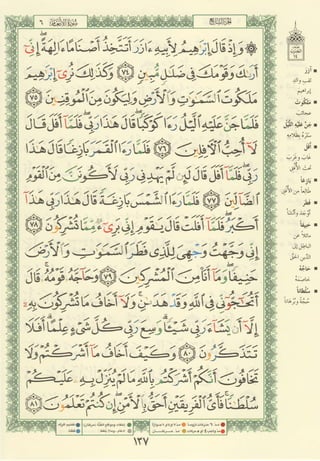 سُورَةُ الأَنْعَام ٦
الجُزءُ السَّابِعُ
۞ وَإِذْ قَالَ إِبْرَٰهِيمُ لِأَبِيهِ ءَازَرَ أَتَتَّخِذُ أَصْنَامًا ءَالِهَةً إِنِّىٓ
أَرَىٰكَ وَقَوْمَكَ فِى ضَلَٰلٍ مُّبِينٍ ٧٤ وَكَذَٰلِكَ نُرِىٓ إِبْرَٰهِيمَ
مَلَكُوتَ ٱلسَّمَٰوَٰتِ وَٱلْأَرْضِ وَلِيَكُونَ مِنَ ٱلْمُوقِنِينَ ٧٥
فَلَمَّا جَنَّ عَلَيْهِ ٱلَّيْلُ رَءَا كَوْكَبًا قَالَ هَٰذَا رَبِّى فَلَمَّآ أَفَلَ قَالَ
لَآ أُحِبُّ ٱلْءَافِلِينَ ٧٦ فَلَمَّا رَءَا ٱلْقَمَرَ بَازِغًا قَالَ هَٰذَا
رَبِّى فَلَمَّآ أَفَلَ قَالَ لَئِن لَّمْ يَهْدِنِى رَبِّى لَأَكُونَنَّ مِنَ ٱلْقَوْمِ
ٱلضَّآلِّينَ ٧٧ فَلَمَّا رَءَا ٱلشَّمْسَ بَازِغَةً قَالَ هَٰذَا رَبِّى هَٰذَآ
أَكْبَرُ فَلَمَّآ أَفَلَتْ قَالَ يَٰقَوْمِ إِنِّى بَرِىٓءٌ مِّمَّا تُشْرِكُونَ ٧٨
إِنِّى وَجَّهْتُ وَجْهِىَ لِلَّذِى فَطَرَ ٱلسَّمَٰوَٰتِ وَٱلْأَرْضَ
حَنِيفًا وَمَآ أَنَا۠ مِنَ ٱلْمُشْرِكِينَ ٧٩ وَحَآجَّهُۥ قَوْمُهُۥ قَالَ
أَتُحَٰٓجُّوٓنِّى فِى ٱللَّهِ وَقَدْ هَدَىٰنِ وَلَآ أَخَافُ مَا تُشْرِكُونَ بِهِۦٓ
إِلَّآ أَن يَشَآءَ رَبِّى شَيْـًٔا وَسِعَ رَبِّى كُلَّ شَىْءٍ عِلْمًا أَفَلَا
تَتَذَكَّرُونَ ٨٠ وَكَيْفَ أَخَافُ مَآ أَشْرَكْتُمْ وَلَا
تَخَافُونَ أَنَّكُمْ أَشْرَكْتُم بِٱللَّهِ مَا لَمْ يُنَزِّلْ بِهِۦ عَلَيْكُمْ
سُلْطَٰنًا فَأَىُّ ٱلْفَرِيقَيْنِ أَحَقُّ بِٱلْأَمْنِ إِن كُنتُمْ تَعْلَمُونَ ٨١
■ آزَرَ
لقب والد
إبراهيم
■ مَلَكُوتَ
عجائب
■ جَنَّ عَلَيْهِ اللَّيْلُ
ستره بظلامه
■ أَفَلَ
غاب وغرب
تحت الأفق
■ بَازِغًا
طالعًا من الأفق
■ فَطَرَ
أوجد وأنشأ
■ حَنِيفًا
مائلاً عن
الباطل إلى
الدين الحق
■ حَاجَّهُ
خاصمه
■ سُلْطَانًا
حجة وبرهانًا
١٣٧